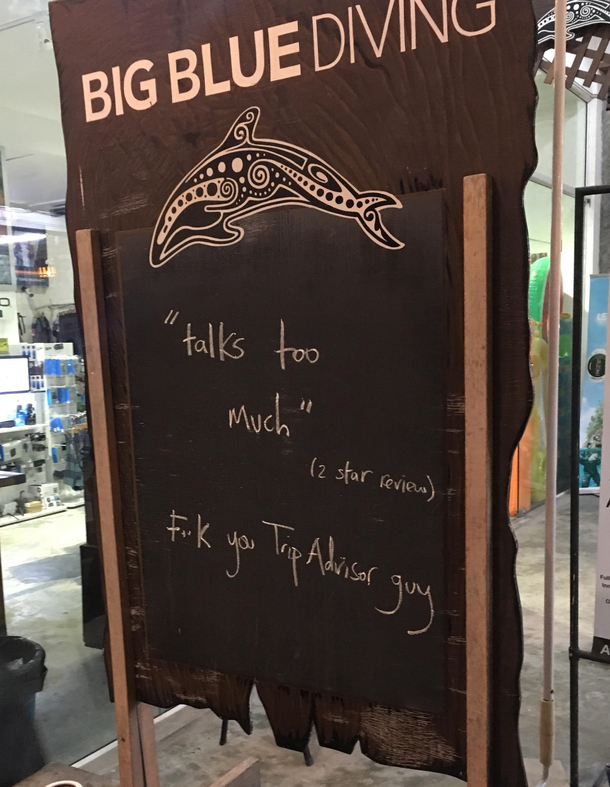 BIG BLUE DIVING
"talks too
much"
(2 star review)
F**k you TripAdvisor guy